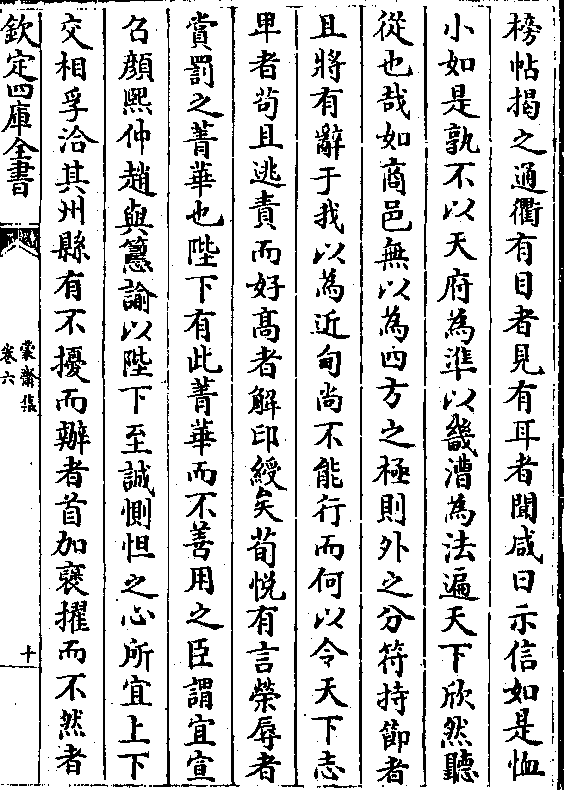 榜帖揭之通衢有目者見有耳者聞咸曰示信如是恤
小如是孰不以天府為準以畿漕為法遍天下欣然聽
從也哉如商邑無以為四方之極則外之分符持節者
且將有辭于我以為近甸尚不能行而何以令天下志
卑者苟且逃責而好髙者解印綬矣荀悅有言榮辱者
賞罰之菁華也陛下有此菁華而不善用之臣謂宜宣
召顔熙仲趙與𥲅諭以陛下至誠惻怛之心所宜上下
交相孚洽其州縣有不擾而辦者首加褒擢而不然者
欽定四庫全書
蒙齋集
卷六
十